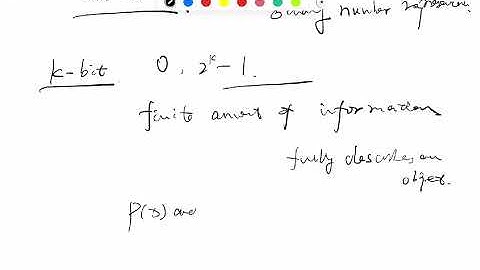 binary number represen
k-bit 0, 2^k - 1.
finite amount of information
fully describes an
object.
P(x) and